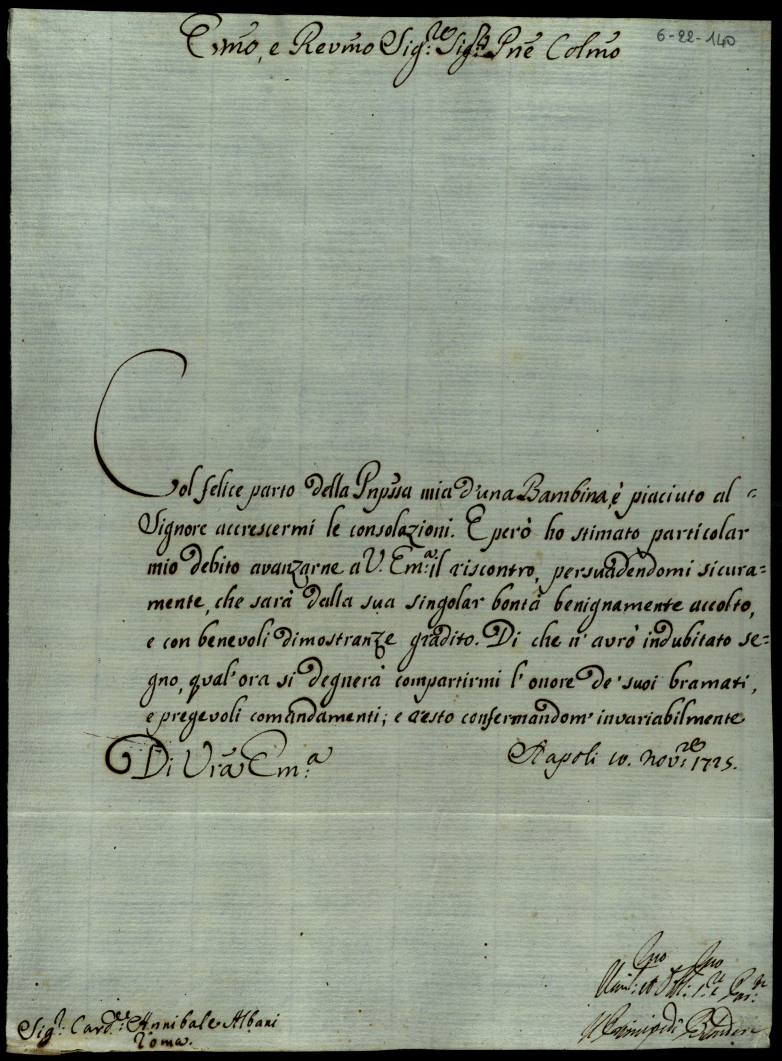 Emo, e Revmo Sig.re Sig.r Pne Colmo
6-22-140
Col felice parto della Pnpssa mia d'una Bambina, è piaciuto al
Signore accrescermi le consolazioni. E però ho stimato particolar
mio debito avanzarne a V. Em.a il riscontro, persuadendomi sicura=
mente, che sarà dalla sua singolar bontà benignamente accolto,
e con benevoli dimostranze gradito. Di che n'avrò indubitato se=
gno, qual'ora si degnerà compartirmi l'onore de' suoi bramati,
e pregevoli comandamenti; e resto confermandom' invariabilmente
Di Vra Em.a
Napoli 10. Nov.re 1725.
Sig.r Card.le Annibale Albani
Roma.